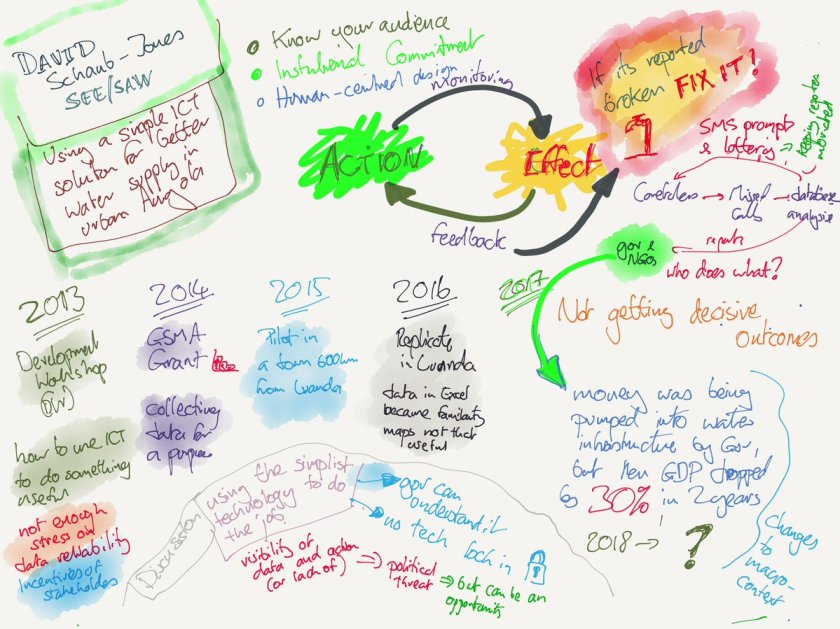 DAVID
Schaub-Jones
SEE/SAW
Using a simple ICT
solution for better
water supply in
urban Angola
Know your audience
Institutional Commitment
Human-centred design
monitoring
ACTION
Effect
feedback
If its reported
broken FIX IT!
1
SMS prompts
& lottery
keeping reporters
motivated
Caretakers → Missed
Calls → database
analysis
repairs
who does what?
gov &
NGOs
2013
Development
Workshop
(DW)
how to use ICT
to do something
useful
not enough
stress on
data reliability
Incentives of
stakeholders
2014
GSMA
Grant
collecting
data for
a purpose
2015
Pilot in
a town 600km
from Luanda
2016
Replicate
in Luanda
data in Excel
because familiarity
maps not that
useful
2017
Not getting decisive
outcomes
money was being
pumped into water
infrastructure by Gov,
but then GDP dropped
by 30% in 2 years
2018 → ?
Changes
to macro-
context
Discussion
using the simplist
technology to do
the job
gov can
understand it
no tech lock in
visibility of
data and action
(or lack of)
⇒ political
threat
⇒ but can be an
opportunity